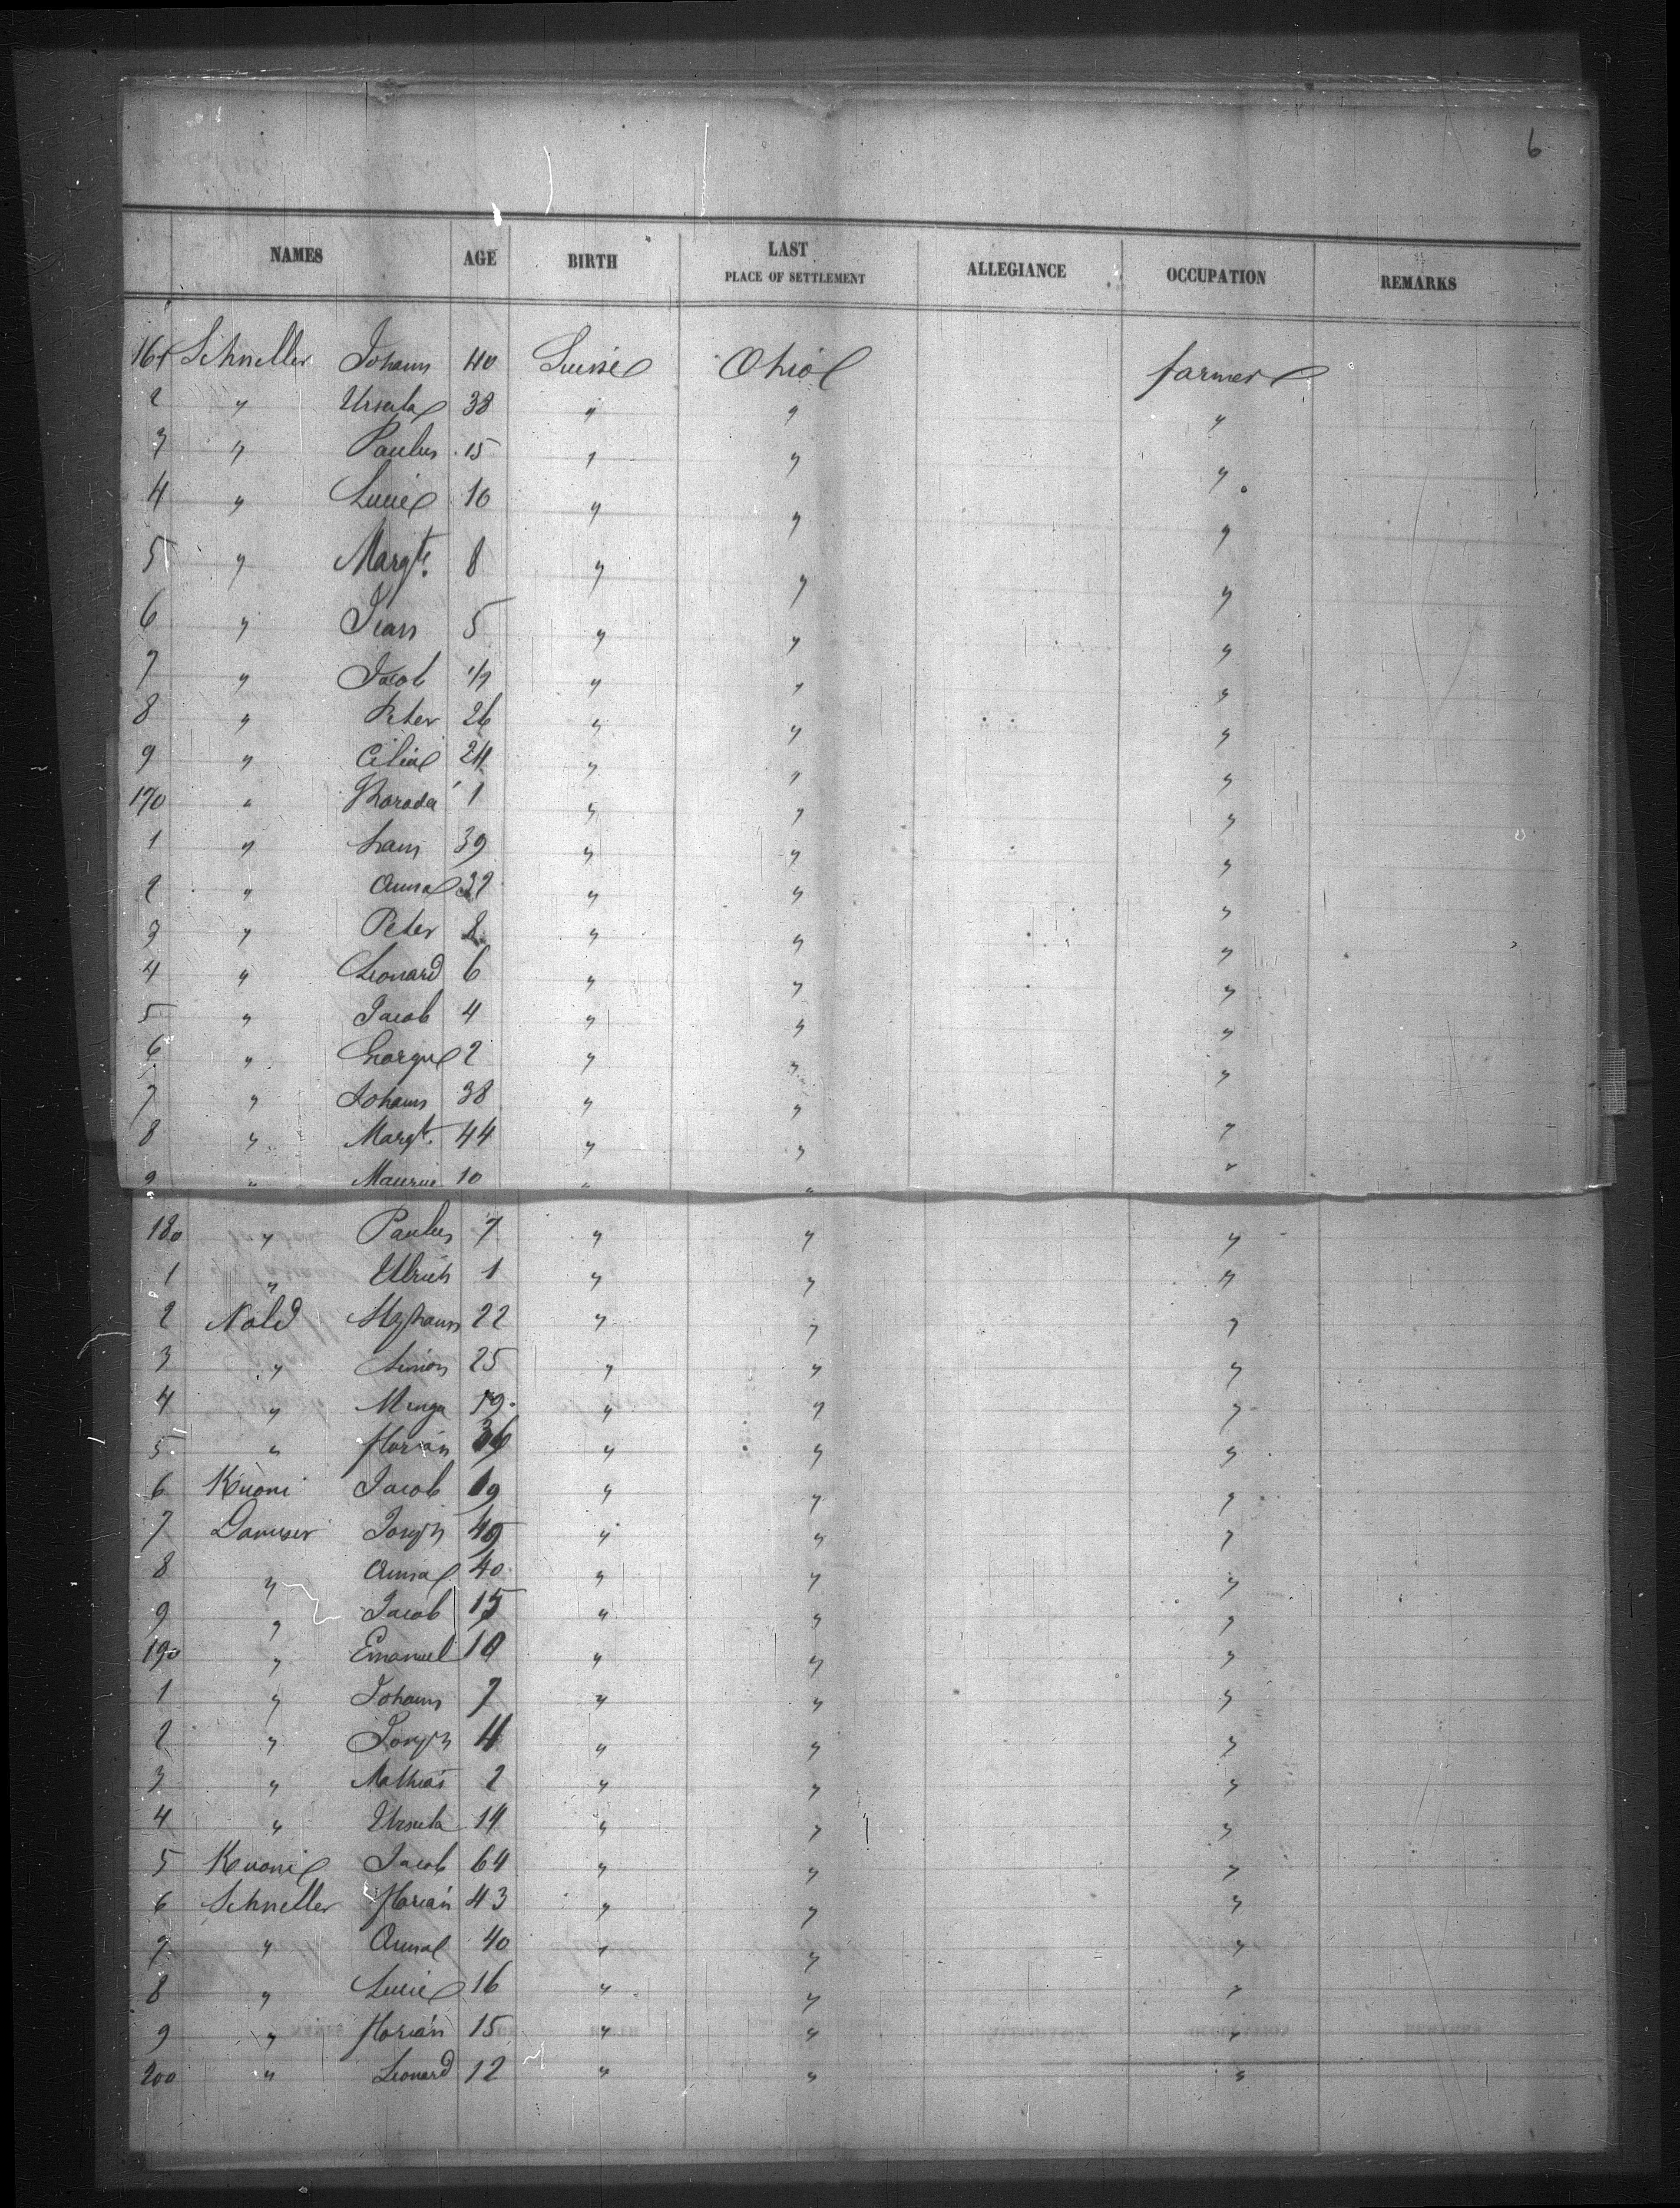 6
NAMES AGE BIRTH LAST PLACE OF SETTLEMENT ALLEGIANCE OCCUPATION REMARKS
161 Schneller Johann 40 Suisse Ohio farmer
2 " Ursula 38 " " "
3 " Paulus 15 " " "
4 " Lucie 10 " " "
5 " Margte. 8 " " "
6 " Jean 5 " " "
7 " Jacob " " "
8 " Peter 26 " " "
9 " Cilia 24 " " "
170 " 1 " " "
1 " hans 39 " " "
2 " Anna " " "
3 " Peter 8 " " "
4 " Leonard 6 " " "
5 " Jacob 4 " " "
6 " George 2 " " "
7 " Johann 38 " " "
8 " Margt. 44 " " "
9 " Maurice 10 " " "
180 " Paulus 7 " " "
1 " Ulrich 1 " " "
2 Nold Stephann 22 " " "
3 " Simon 25 " " "
4 " Menga 19 " " "
5 " florian 36 " " "
6 Kuoni Jacob 19 " " "
7 Danuser Joseph " " "
8 " Anna 40 " " "
9 " Jacob 15 " " "
190 " Emanuel 10 " " "
1 " Johann 7 " " "
2 " Joseph 4 " " "
3 " Mathias 2 " " "
4 " Ursula 14 " " "
5 Kuoni Jacob 64 " " "
6 Schneller florian 43 " " "
7 " Anna 40 " " "
8 " Lucie 16 " " "
9 " florian 15 " " "
200 " Leonard 12 " " "